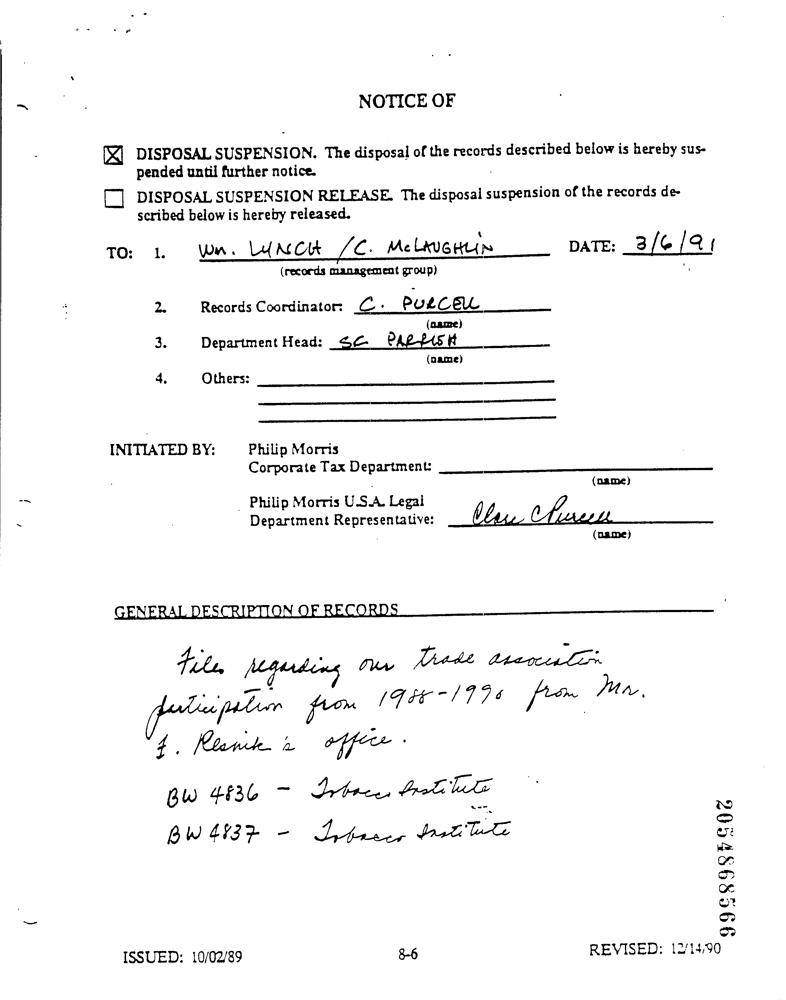 NOTICE OF
☒ DISPOSAL SUSPENSION. The disposal of the records described below is hereby sus-
pended until further notice.
☐ DISPOSAL SUSPENSION RELEASE. The disposal suspension of the records de-
scribed below is hereby released.
TO: 1. Wm. LYNCH / C. McLAUGHLIN DATE: 3/6/91
(records management group)
2. Records Coordinator: C. PURCELL
(name)
3. Department Head: SC PARRISH
(name)
4. Others:
INITIATED BY: Philip Morris
Corporate Tax Department:
(name)
Philip Morris U.S.A. Legal
Department Representative: Clare Purcell
(name)
GENERAL DESCRIPTION OF RECORDS
Files regarding our trade association
participation from 1988-1990 from Mr.
F. Resnik's office.
BW 4836 - Tobacco Institute
BW 4837 - Tobacco Institute
2054868566
ISSUED: 10/02/89 8-6 REVISED: 12/14/90